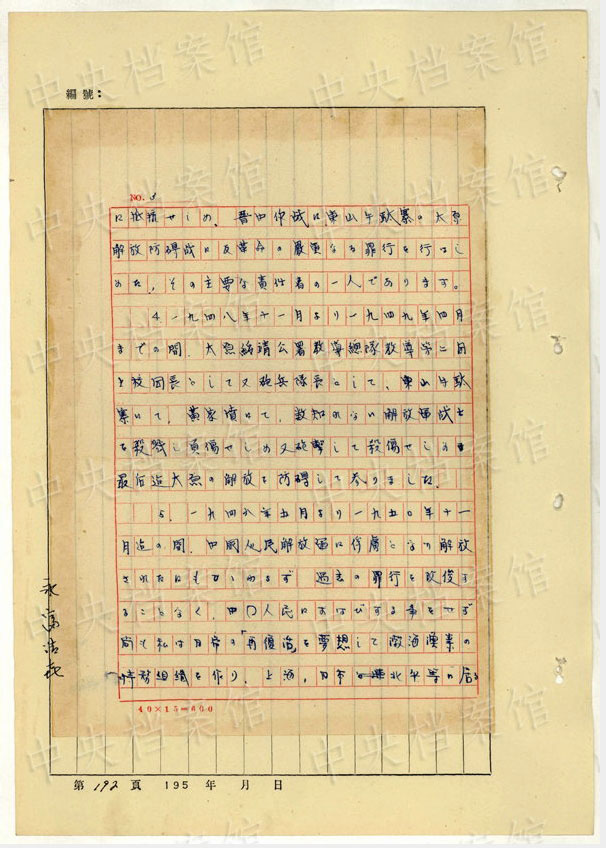 編號:
NO. 5
に抵抗せしめ、晋中作战に東山牛駄寨の太原
解放防碍战に反革命の嚴重なる罪行を行はし
めた、その主要な責任者の一人であります。
4 一九四八年十一月より一九四九年四月
までの間、太原綏靖公署教導總隊教導第二団
上校団長として又砲兵隊長として、東山牛駄
寨にて、黄家墳にて、数知れない解放軍战士
を殺戮し負傷せしめ又砲撃して殺傷せしめ
最后迠太原の解放を防碍して参りました。
5、一九四九年五月より一九五〇年十一
月迠の間、中國人民解放軍に俘虜となり解放
されたにもかゝわらず 過去の罪行を改俊す
ることなく、中囗人民に する事をせず
尚も私は日帝の「再復治」を夢想して
特務組織を作り、上海、 北平等に居る
40×15=600
永富浩喜
第192頁 195 年 月 日
中央档案馆